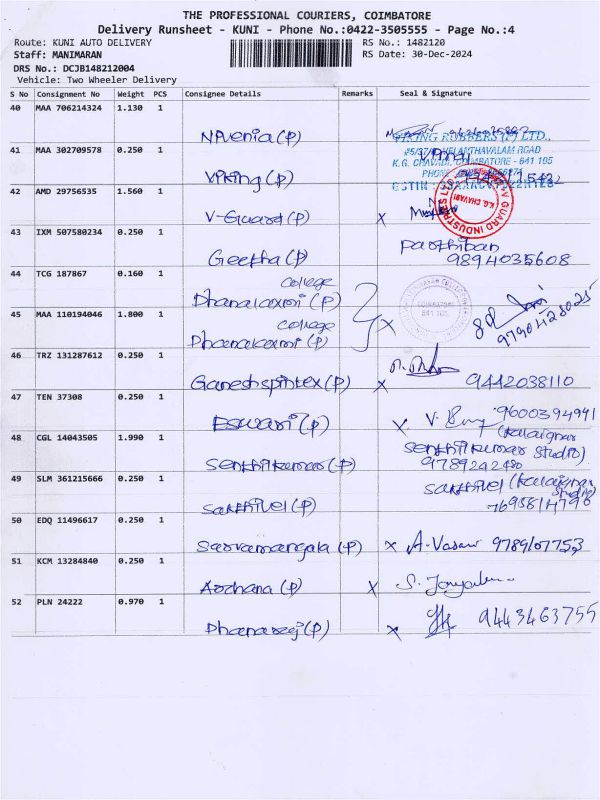 THE PROFESSIONAL COURIERS, COIMBATORE
Delivery Runsheet - KUNI - Phone No.:0422-3505555 - Page No.:4
Route: KUNI AUTO DELIVERY RS No.: 1482120
Staff: MANIMARAN RS Date: 30-Dec-2024
DRS No.: DCJB148212004
Vehicle: Two Wheeler Delivery
S No Consignment No Weight PCS Consignee Details Remarks Seal & Signature
40 MAA 706214324 1.130 1
(P)
VIKING RUBBERS (P) LTD.,
41 MAA 302709578 0.250 1
K.G. CHAVADI, COIMBATORE - 641 105
Viking (P)
42 AMD 29756535 1.560 1
V-Guard (P) x
V GUARD INDUSTRIES LTD
K.G. CHAVADI
43 IXM 507580234 0.250 1 Parthiban
Geetha (P) 9894035608
44 TCG 187867 0.160 1 college
Dhanalaxmi (P)
COIMBATORE
641 105
45 MAA 110194046 1.800 1 college x
Dhanalaxmi (P)
46 TRZ 131287612 0.250 1
Ganeshspintex (P) x 9442038110
47 TEN 37308 0.250 1 9600394941
Eswari (P) x
48 CGL 14043505 1.990 1 (Kalaignar
Senthilkumar Studio)
Senthilkumar (P)
49 SLM 361215666 0.250 1 Sakthivel (Kalaignar
Studio)
Sakthivel (P)
50 EDQ 11496617 0.250 1
Sarvamangala (P) x A-Vasuki 9789107753
51 KCM 13284840 0.250 1
Archana (P) x
52 PLN 24222 0.970 1 9443463755
Dhanaraj (P) x